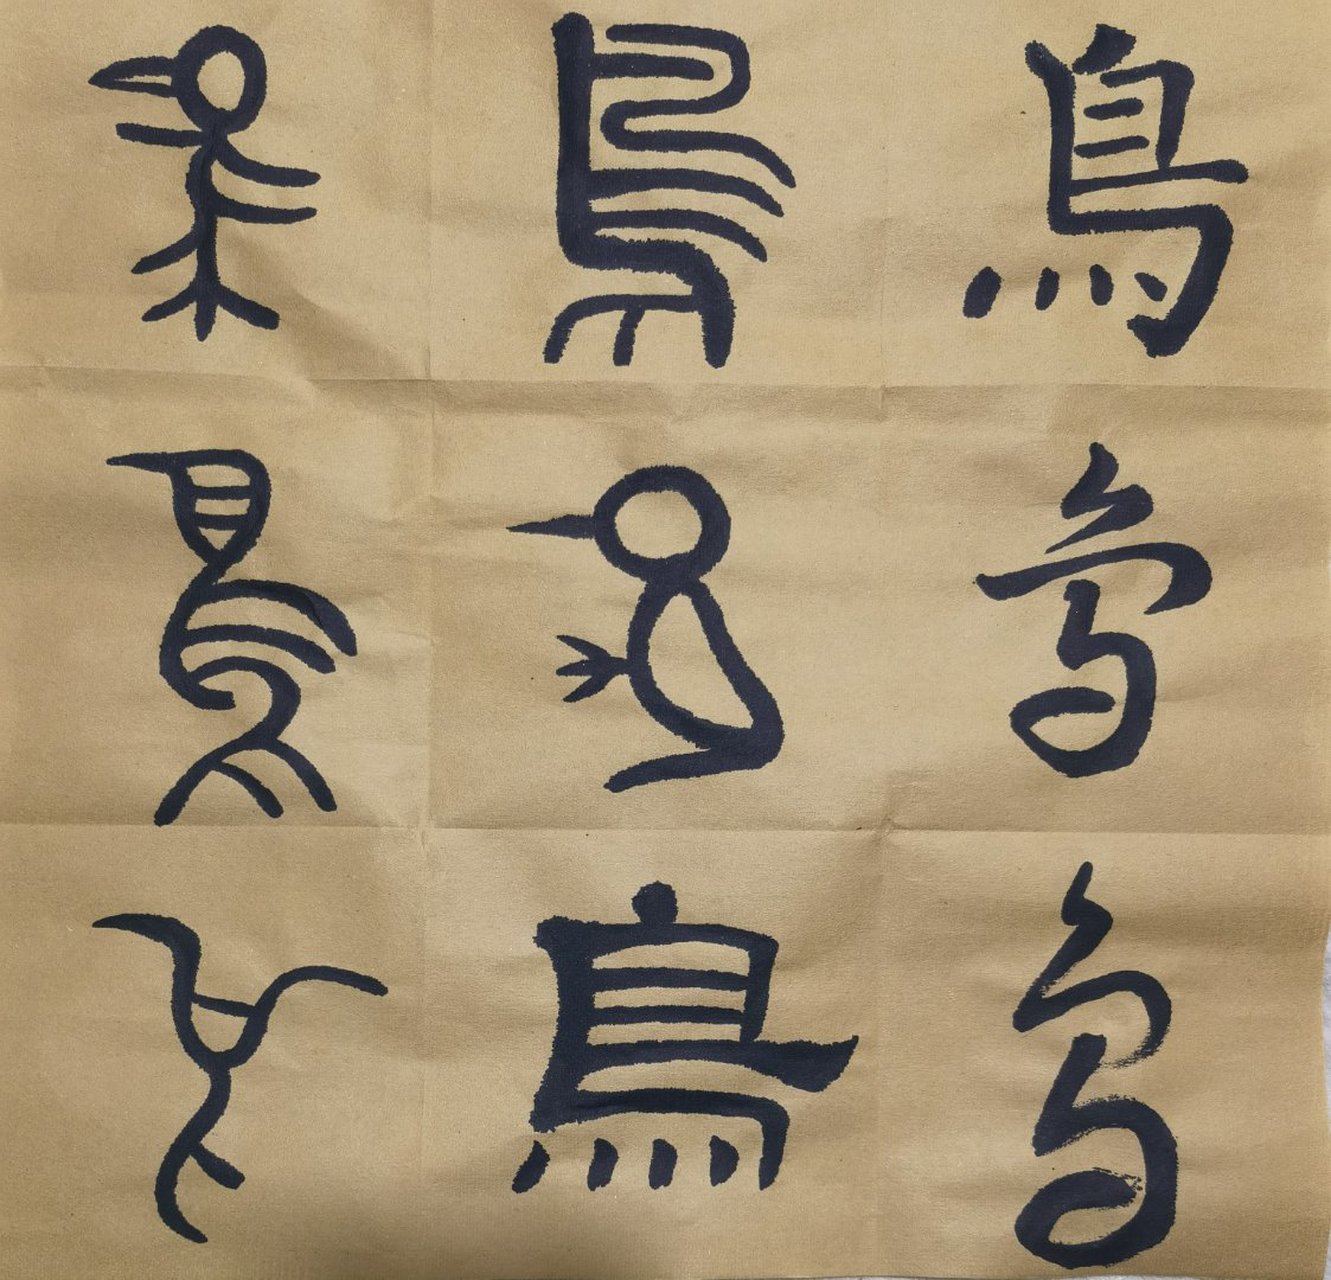 鳥 鳥 鳥
鳥 鳥 鳥
鳥 鳥 鳥